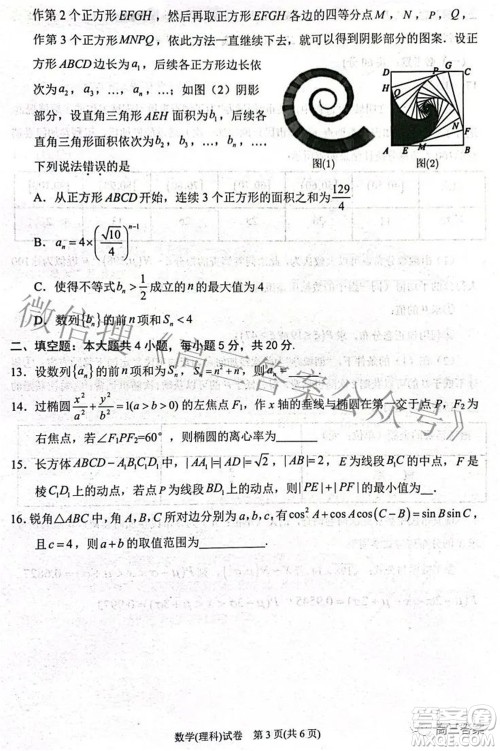 作第 2 个正方形 EFGH，然后再取正方形 EFGH 各边的四等分点 M，N，P，Q，
作第 3 个正方形 MNPQ，依此方法一直继续下去，就可以得到阴影部分的图案．设正
方形 ABCD 边长为 a₁，后续各正方形边长依
次为 a₂，a₃，…，aₙ，…；如图（2）阴影
部分，设直角三角形 AEH 面积为 b₁，后续各
直角三角形面积依次为 b₂，b₃，…，bₙ，…．
下列说法错误的是
图(1)
图(2)
D G C
P
H
Q
M N
A E B
A．从正方形 ABCD 开始，连续 3 个正方形的面积之和为 129/4
B．aₙ=4×(√10/4)ⁿ⁻¹
C．使得不等式 bₙ>1/2 成立的 n 的最大值为 4
D．数列{bₙ}的前 n 项和 Sₙ<4
二、填空题：本大题共 4 小题，每小题 5 分，共 20 分．
13．设数列{aₙ}的前 n 项和为 Sₙ，Sₙ=n²+n，则 aₙ=
14．过椭圆 x²/a²+y²/b²=1(a>b>0) 的左焦点 F₁，作 x 轴的垂线与椭圆在第一交于点 P，F₂ 为
右焦点，若∠F₁PF₂=60°，则椭圆的离心率为
15．长方体 ABCD−A₁B₁C₁D₁ 中，|AB|=|AD|=√2，|AA₁|=2，E 为线段 B₁C 的中点，F 是
棱 C₁D₁ 上的动点，若点 P 为线段 BD₁ 上的动点，则|PE|+|PF|的最小值为__．
16．锐角△ABC 中，角 A,B,C 所对边分别为 a,b,c，有 cos²A+cosAcos(C−B)=sinBsinC，
且 c=4，则 a+b 的取值范围为______．
微信搜《高三答案公众号》
数学(理科)试卷 第 3 页(共 6 页)
高三答案